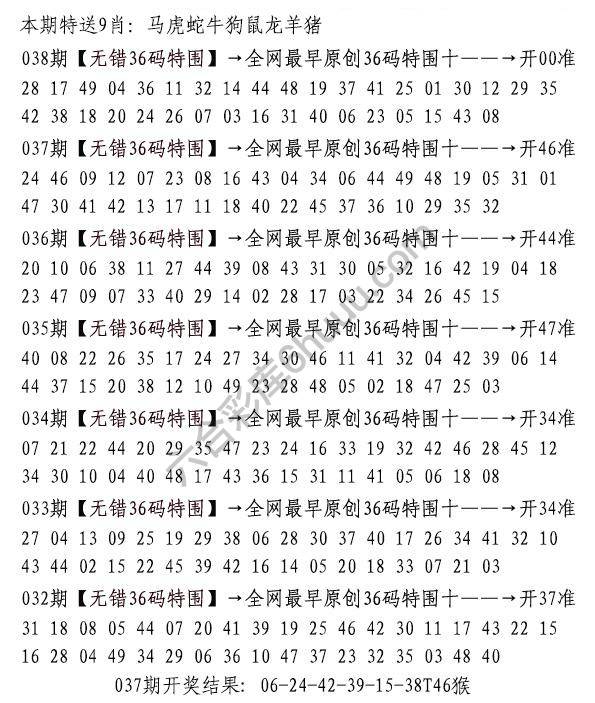 本期特送9肖: 马虎蛇牛狗鼠龙羊猪
038期【无错36码特围】→全网最早原创36码特围十——→开00准
28 17 49 04 36 11 32 14 44 48 19 37 41 25 01 30 12 29 35
42 38 18 20 24 26 07 03 16 31 40 06 23 05 15 43 08
037期【无错36码特围】→全网最早原创36码特围十——→开46准
24 46 09 12 07 23 08 16 43 04 34 06 44 49 48 19 05 31 01
47 30 41 42 13 17 11 18 40 22 45 37 36 10 29 35 32
036期【无错36码特围】→全网最早原创36码特围十——→开44准
20 10 06 38 11 27 44 39 08 43 31 30 05 32 16 42 19 04 18
23 47 09 07 33 40 29 14 02 28 17 03 22 34 26 45 15
035期【无错36码特围】→全网最早原创36码特围十——→开47准
40 08 22 26 35 17 24 27 34 30 46 11 41 32 04 42 39 06 14
44 37 15 20 38 12 10 49 23 28 48 05 02 18 47 25 03
034期【无错36码特围】→全网最早原创36码特围十——→开34准
07 21 22 44 20 29 35 47 23 24 16 33 19 32 42 46 28 45 12
34 30 10 04 40 48 17 43 36 15 31 11 41 05 06 18 08
033期【无错36码特围】→全网最早原创36码特围十——→开34准
27 04 13 09 25 19 29 38 06 28 30 37 40 17 26 34 41 32 10
43 44 02 15 22 45 39 42 16 14 05 20 18 33 07 21 03
032期【无错36码特围】→全网最早原创36码特围十——→开37准
31 18 08 05 44 07 20 41 39 19 25 46 42 30 11 17 43 22 15
16 28 04 49 34 29 06 36 10 47 37 23 32 35 03 48 40
037期开奖结果: 06-24-42-39-15-38T46猴
六合彩库6huuu.com